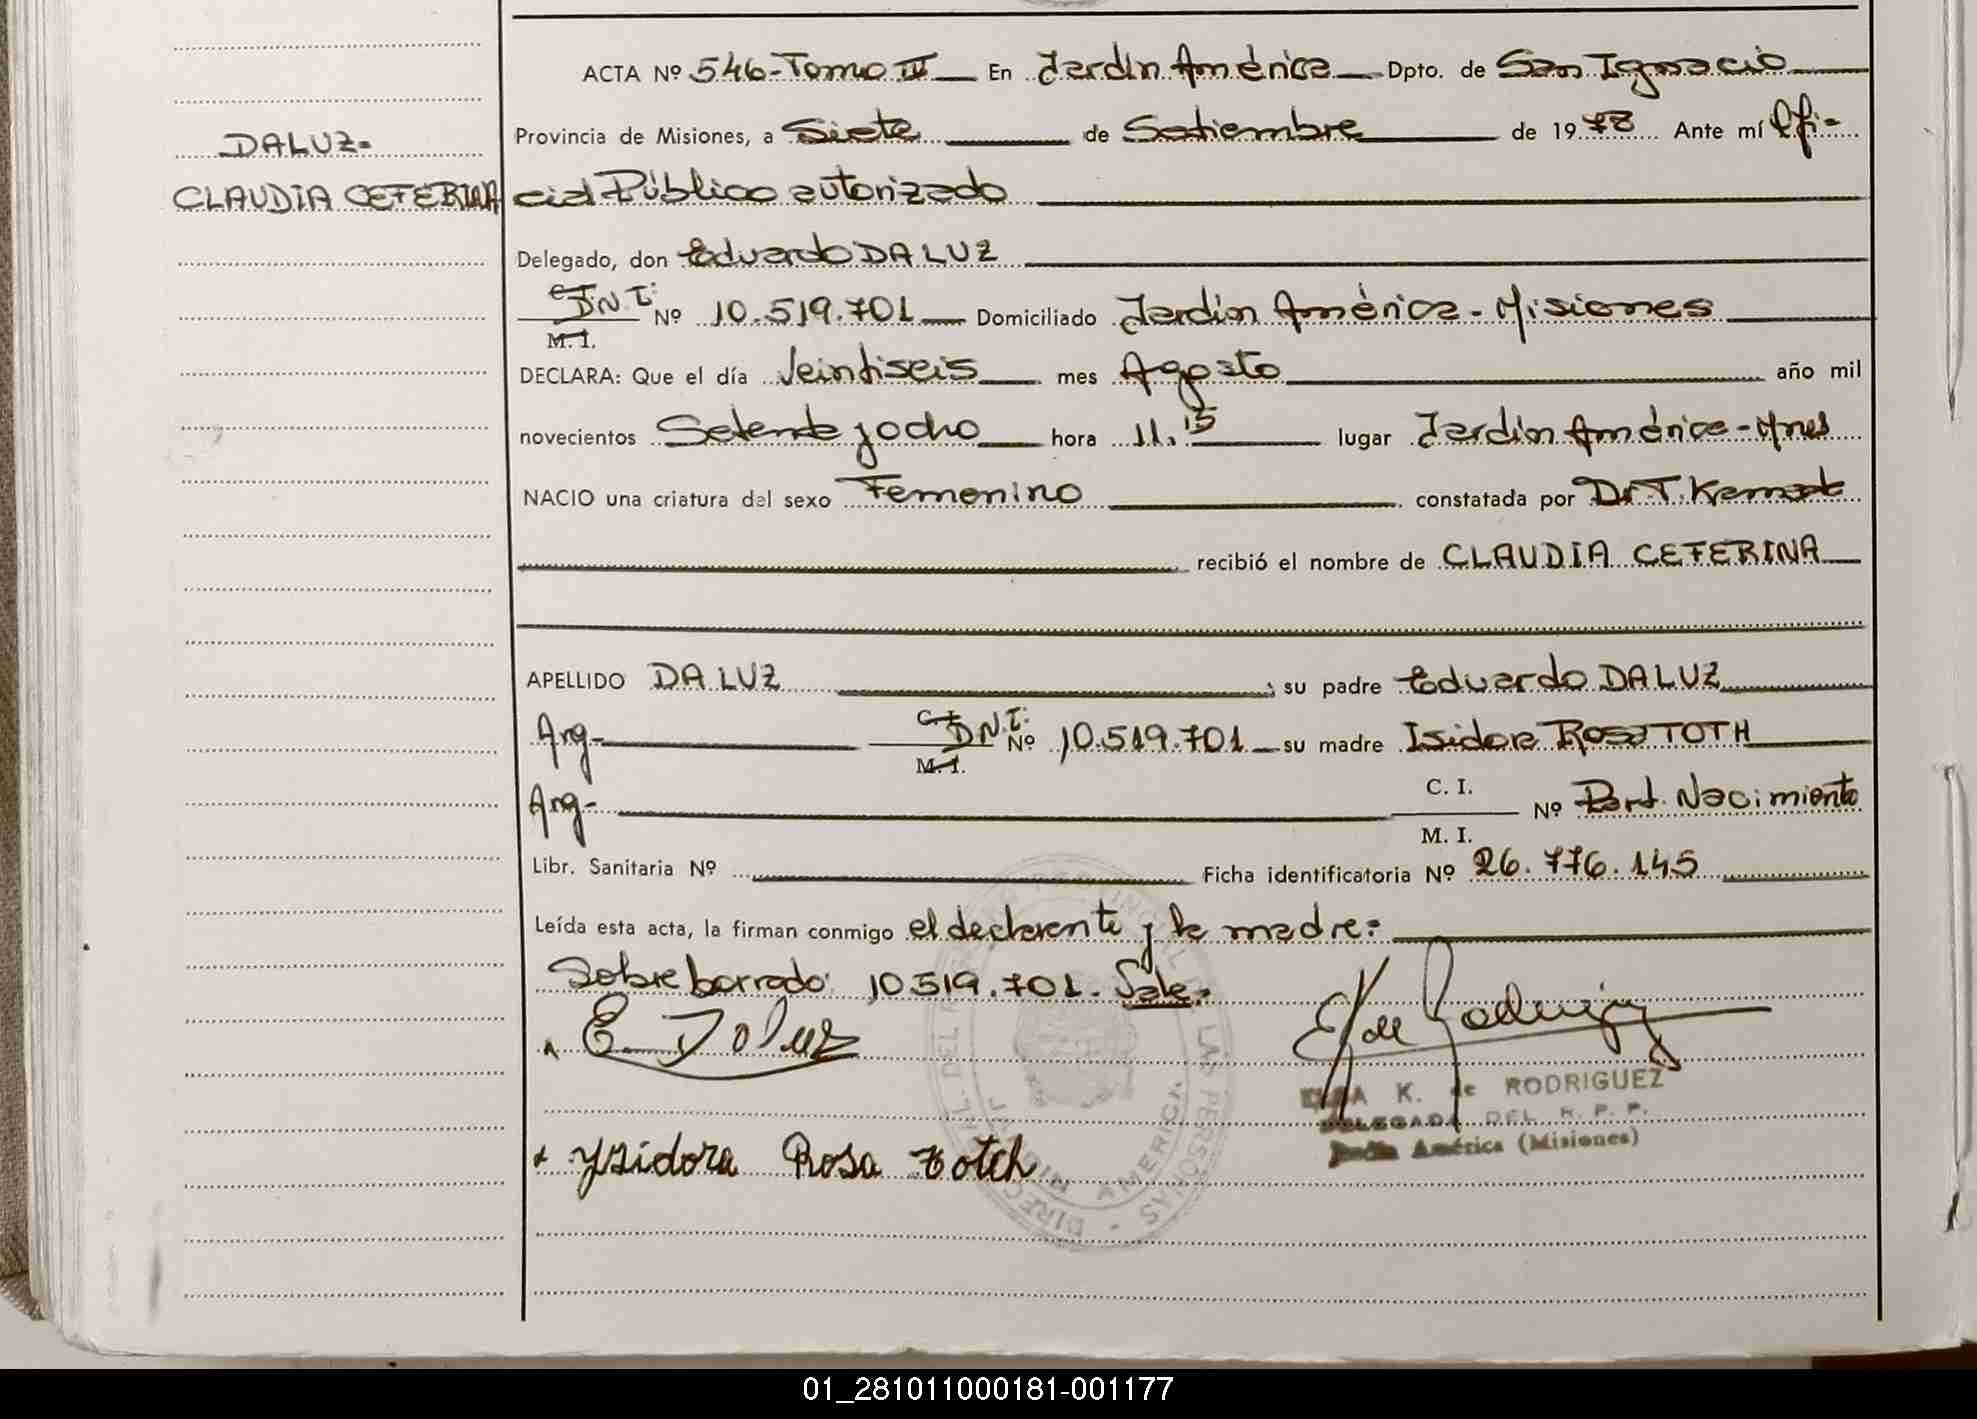 ACTA Nº 546-Tomo III En Jardín América Dpto. de San Ignacio
DALUZ- Provincia de Misiones, a Siete de Setiembre de 1978 Ante mí Ofi-
CLAUDIA CEFERINA cial Público autorizado
Delegado, don Eduardo DA LUZ
C.I. D.N.I. M.I. Nº 10.519.701 Domiciliado Jardín América - Misiones
DECLARA: Que el día Veintiseis mes Agosto año mil
novecientos Setenta y ocho hora 11.15 lugar Jardín América - Mnes
NACIO una criatura del sexo Femenino constatada por Dr. T.
recibió el nombre de CLAUDIA CEFERINA
APELLIDO DA LUZ su padre Eduardo DA LUZ
Arg- C.I. D.N.I. M.I. Nº 10.519.701 su madre Isidora Rosa TOTH
Arg- C. I. M. I. Nº Part. Nacimiento
Libr. Sanitaria Nº Ficha identificatoria Nº 26.776.145
Leída esta acta, la firman conmigo el declarante y la madre:
Sobre borrado: 10.519.701. Vale.
E. Da luz
K. de RODRIGUEZ
DELEGADA DEL R. P. P.
Jardín América (Misiones)
Ysidora Rosa Totch
01_281011000181-001177